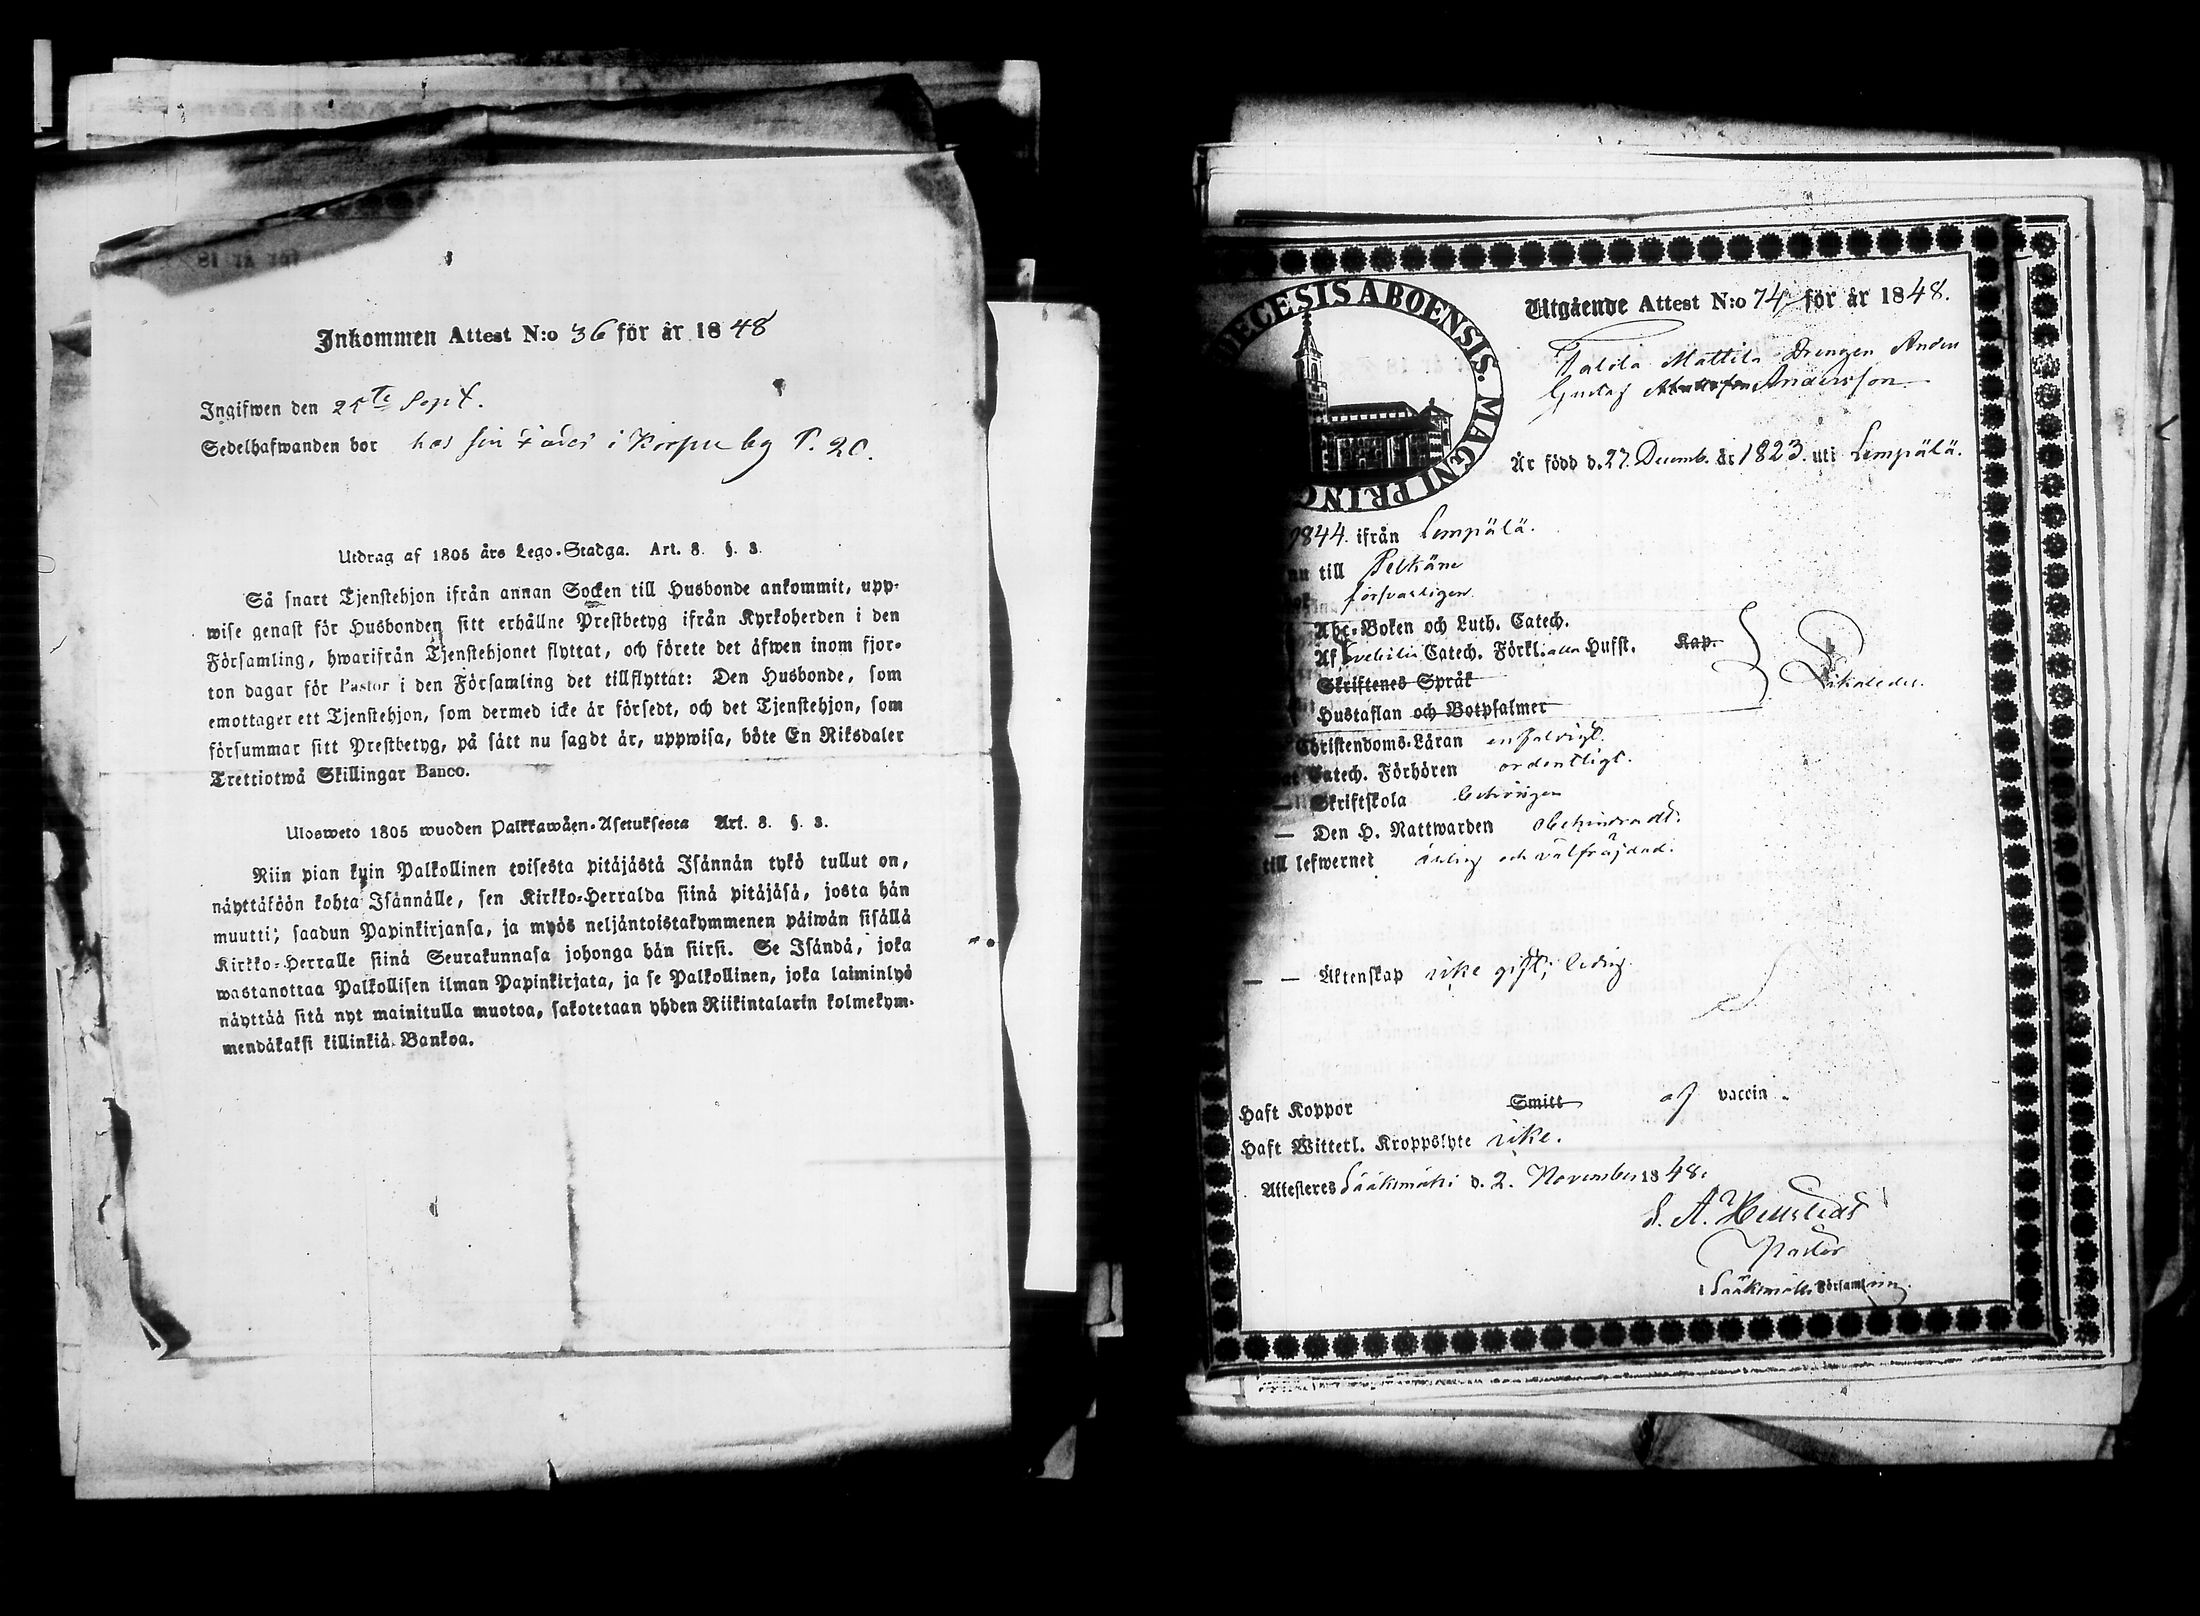 Inkommen Attest N:o 36 för år 1848
Ingifwen den 25te Sept.
Sedelhafwanden bor hos sin Fader i Korpu by P. 20.
Utdrag af 1805 års Lego-Stadga. Art. 8. §. 3.
Så snart Tjenstehjon ifrån annan Socken till Husbonde ankommit, upp-
wise genast för Husbonden sitt erhållne Prestbetyg ifrån Kyrkoherden i den
Församling, hwarifrån Tjenstehjonet flyttat, och förete det äfwen inom fjor-
ton dagar för Pastor i den Församling det tillflyttat: Den Husbonde, som
emottager ett Tjenstehjon, som dermed icke är försedt, och det Tjenstehjon, som
försummar sitt Prestbetyg, på sätt nu sagdt är, uppwisa, böte En Riksdaler
Trettiotwå Skillingar Banco.
Ulosweto 1805 wuoden Palkkawäen-Asetuksesta Art. 8. §. 3.
Niin pian kuin Palkollinen toisesta pitäjästä Isännän tykö tullut on,
näyttäköön kohta Isännälle, sen Kirkko-Herralda siinä pitäjäsä, josta hän
muutti; saadun Papinkirjansa, ja myös neljäntoistakymmenen päiwän sisällä
Kirkko-Herralle siinä Seurakunnasa johonga hän siirsi. Se Isändä, joka
wastanottaa Palkollisen ilman Papinkirjata, ja se Palkollinen, joka laiminlyö
näyttää sitä nyt mainitulla muotoa, sakotetaan yhden Riikintalarin kolmekym-
mendäkaksi killinkiä Bankoa.
DECESIS ABOENSIS. MAGNI PRINC
Utgående Attest N:o 74 för år 1848.
Mattila Drengen Anders
Gustaf Andersson
Är född d. 27. Decemb. år 1823. uti Lempälä.
1844. ifrån Lempälä.
nu till Pelkäne
försvarligen
Abc-Boken och Luth. Catech.
Af Svebilii Catech. Förkl. alla Hufst. Kap.
Skriftenes Språk
Hustaflan och Botpsalmer
Christendoms-Läran enfaldigt.
Catech. Förhören ordentligt.
Skriftskola behörigen
— Den H. Nattwarden obehindradt.
till lefwernet ärlig och välfräjdad.
— — Äktenskap icke gift, ledig.
Haft Koppor Smitt af vaccin.
Haft Witterl. Kroppslyte icke.
Attesteres Sääksmäki d. 2. November 1848.
Pastor
i Sääksmäki Församling.